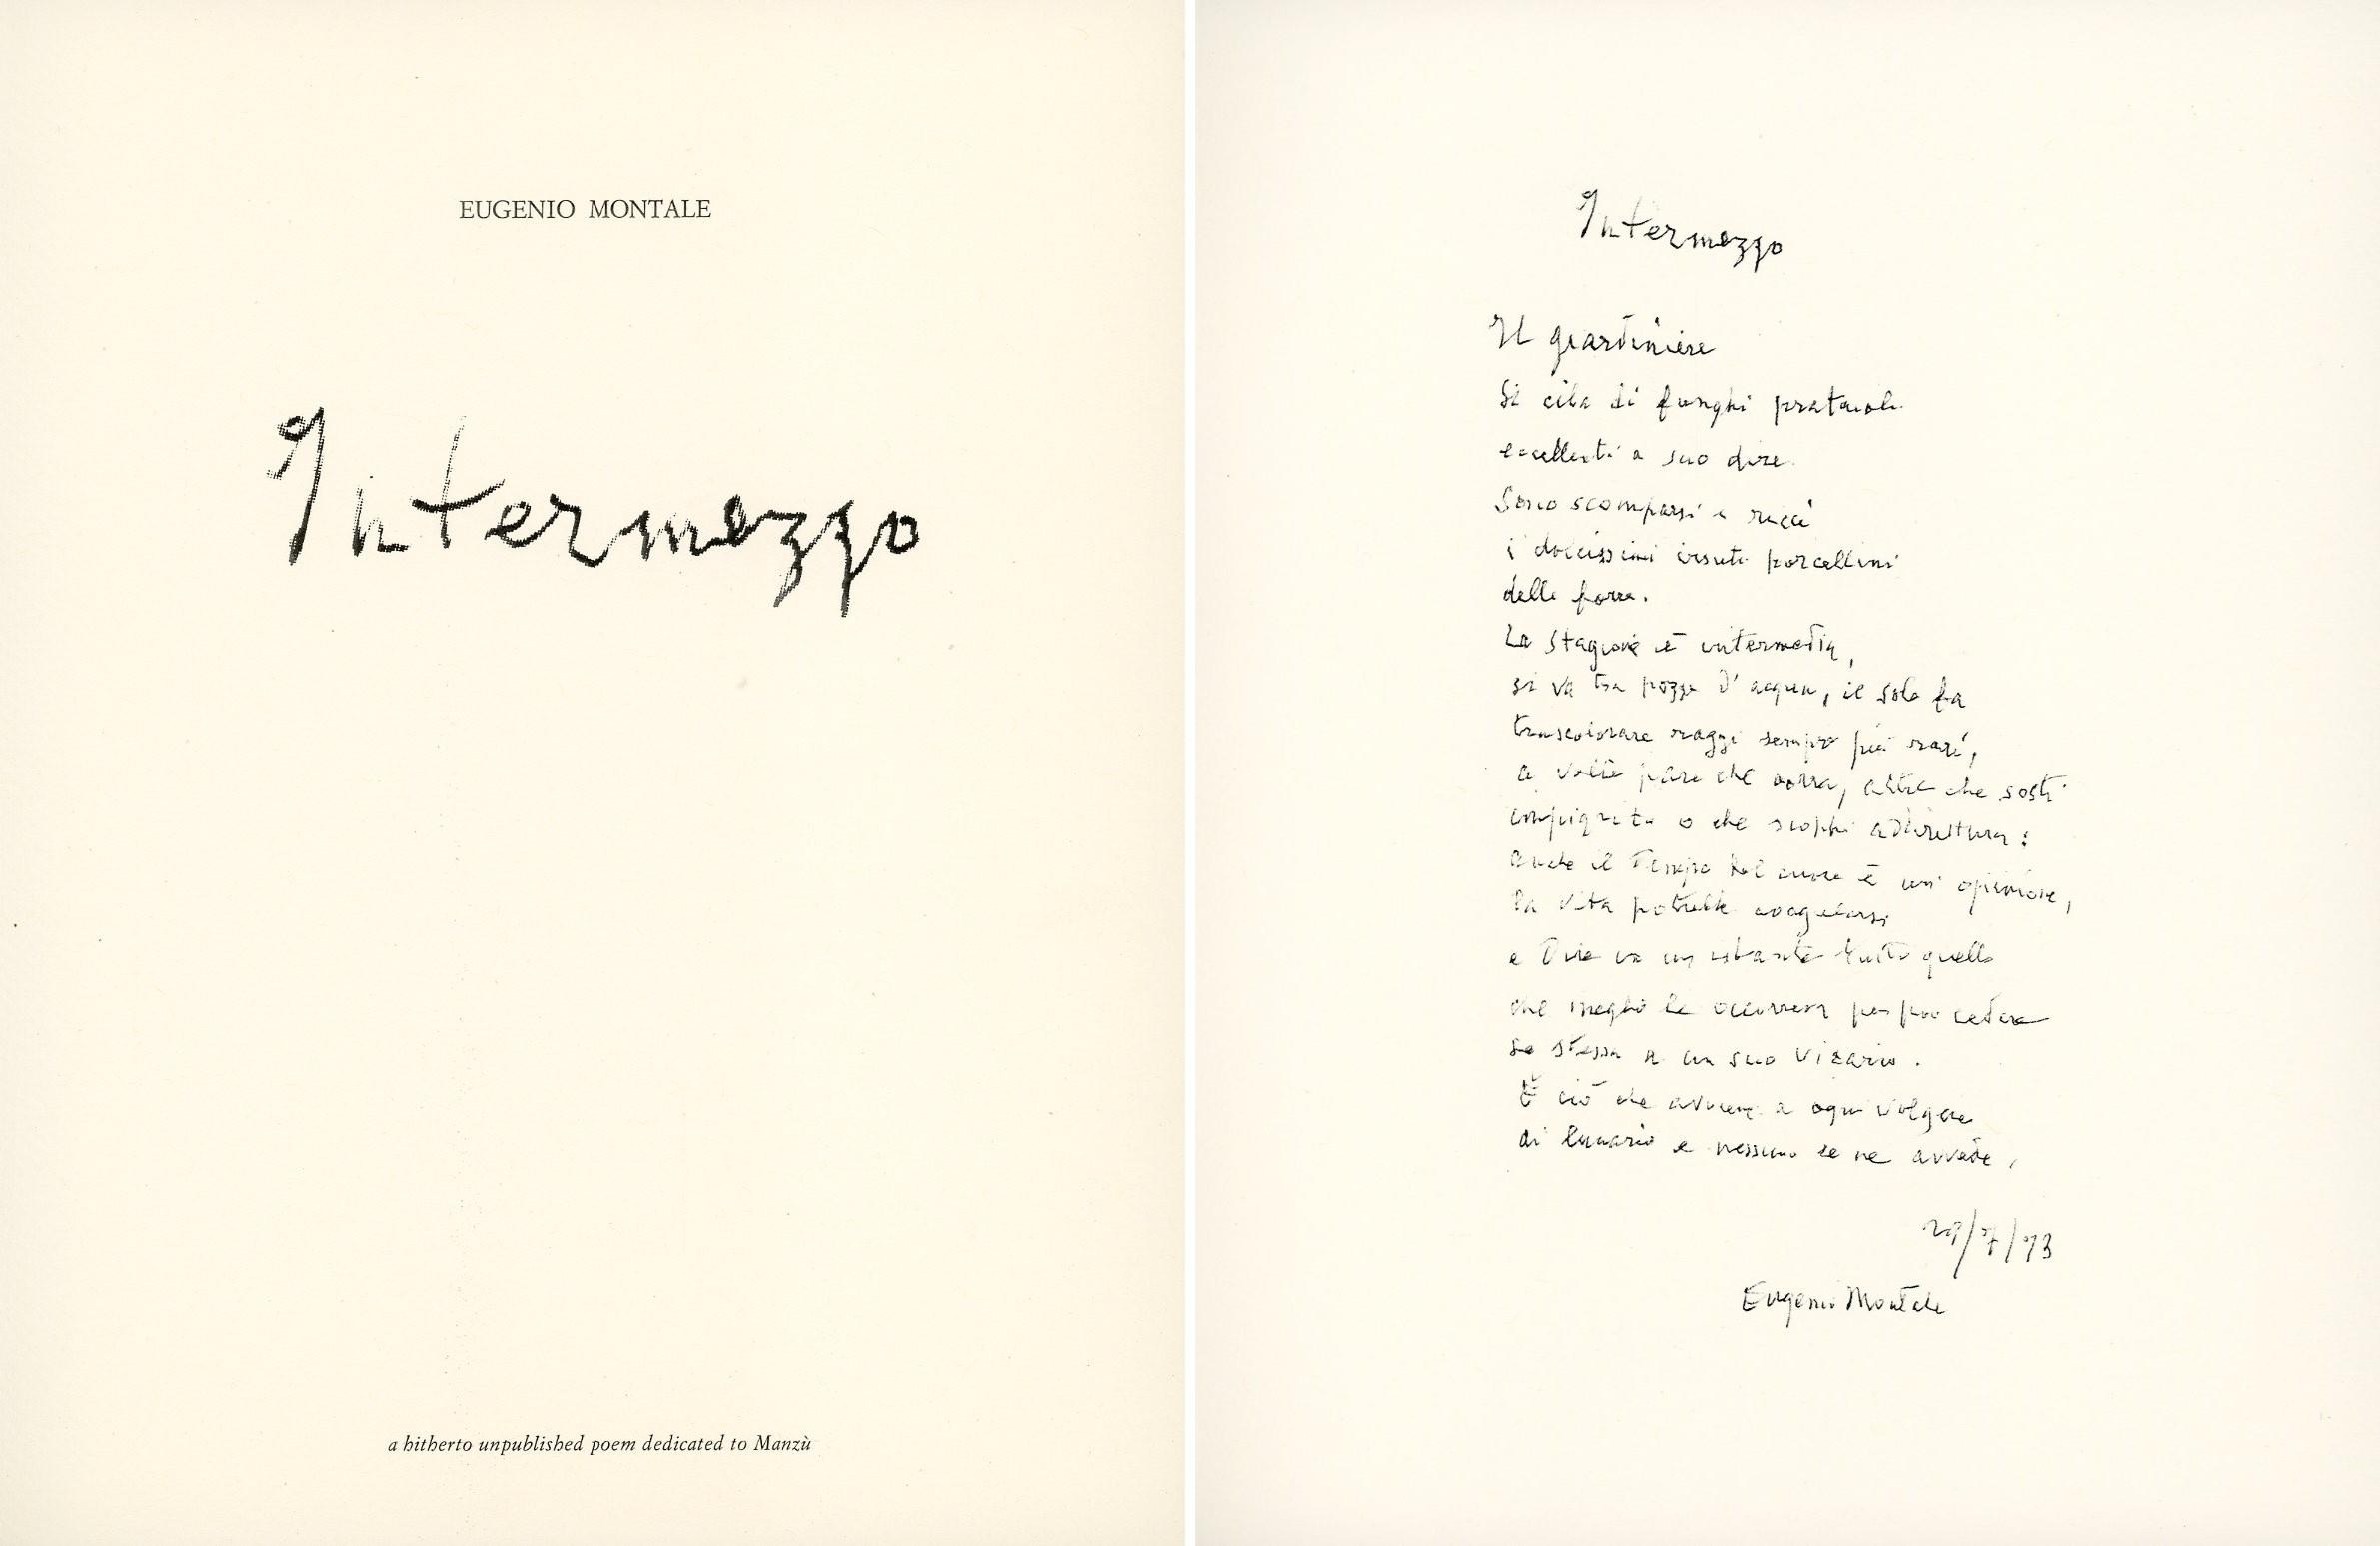 EUGENIO MONTALE
Intermezzo
a hitherto unpublished poem dedicated to Manzù
Intermezzo
Il giardiniere
si ciba di funghi prataioli
eccellenti a suo dire.
Sono scomparsi i ricci
i dolcissimi irsuti porcellini
delle forre.
La stagione è intermedia,
si va tra pozze d'acqua, il sole fa
trascolorare raggi sempre più rari,
a volte pare che corra, altre che sosti
impigrito o che scoppi addirittura:
anche il tempo del cuore è un'opinione,
la vita potrebbe coagularsi
e dire in un istante tutto quello
che meglio le occorreva per poi cedere
se stessa a un suo vicario.
È ciò che avviene a ogni volgere
di lunario e nessuno se ne avvede.
29/7/73
Eugenio Montale